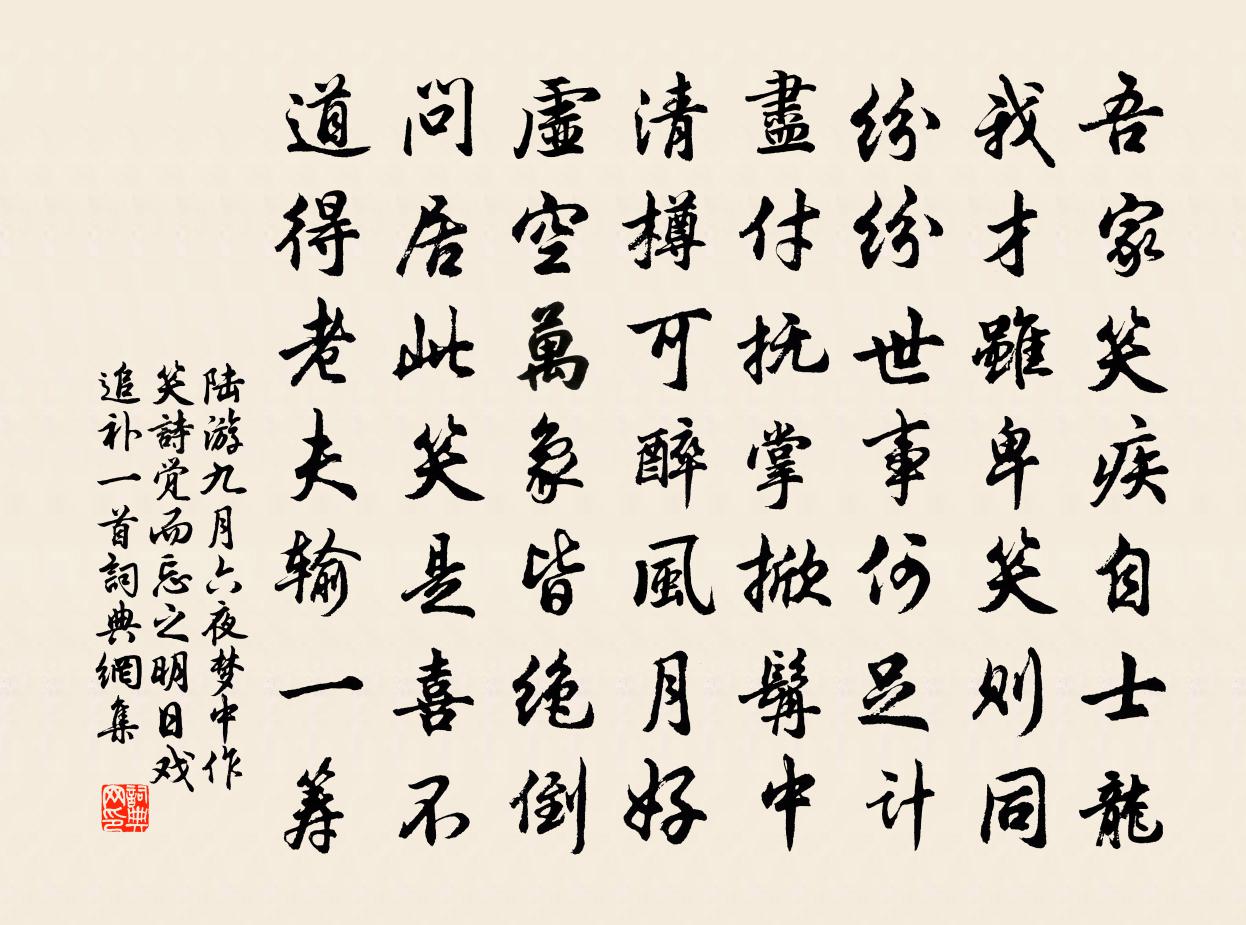 吾家笑疾自士龍
我才雖卑笑则同
纷纷世事何足计
盡付抚掌掀髯中
清樽可醉風月好
虛空萬象皆绝倒
問居此笑是喜不
道得老夫输一筹
陆游九月六夜梦中作
笑詩觉而忘之明日戏
追补一首詞典網集
詞典网印